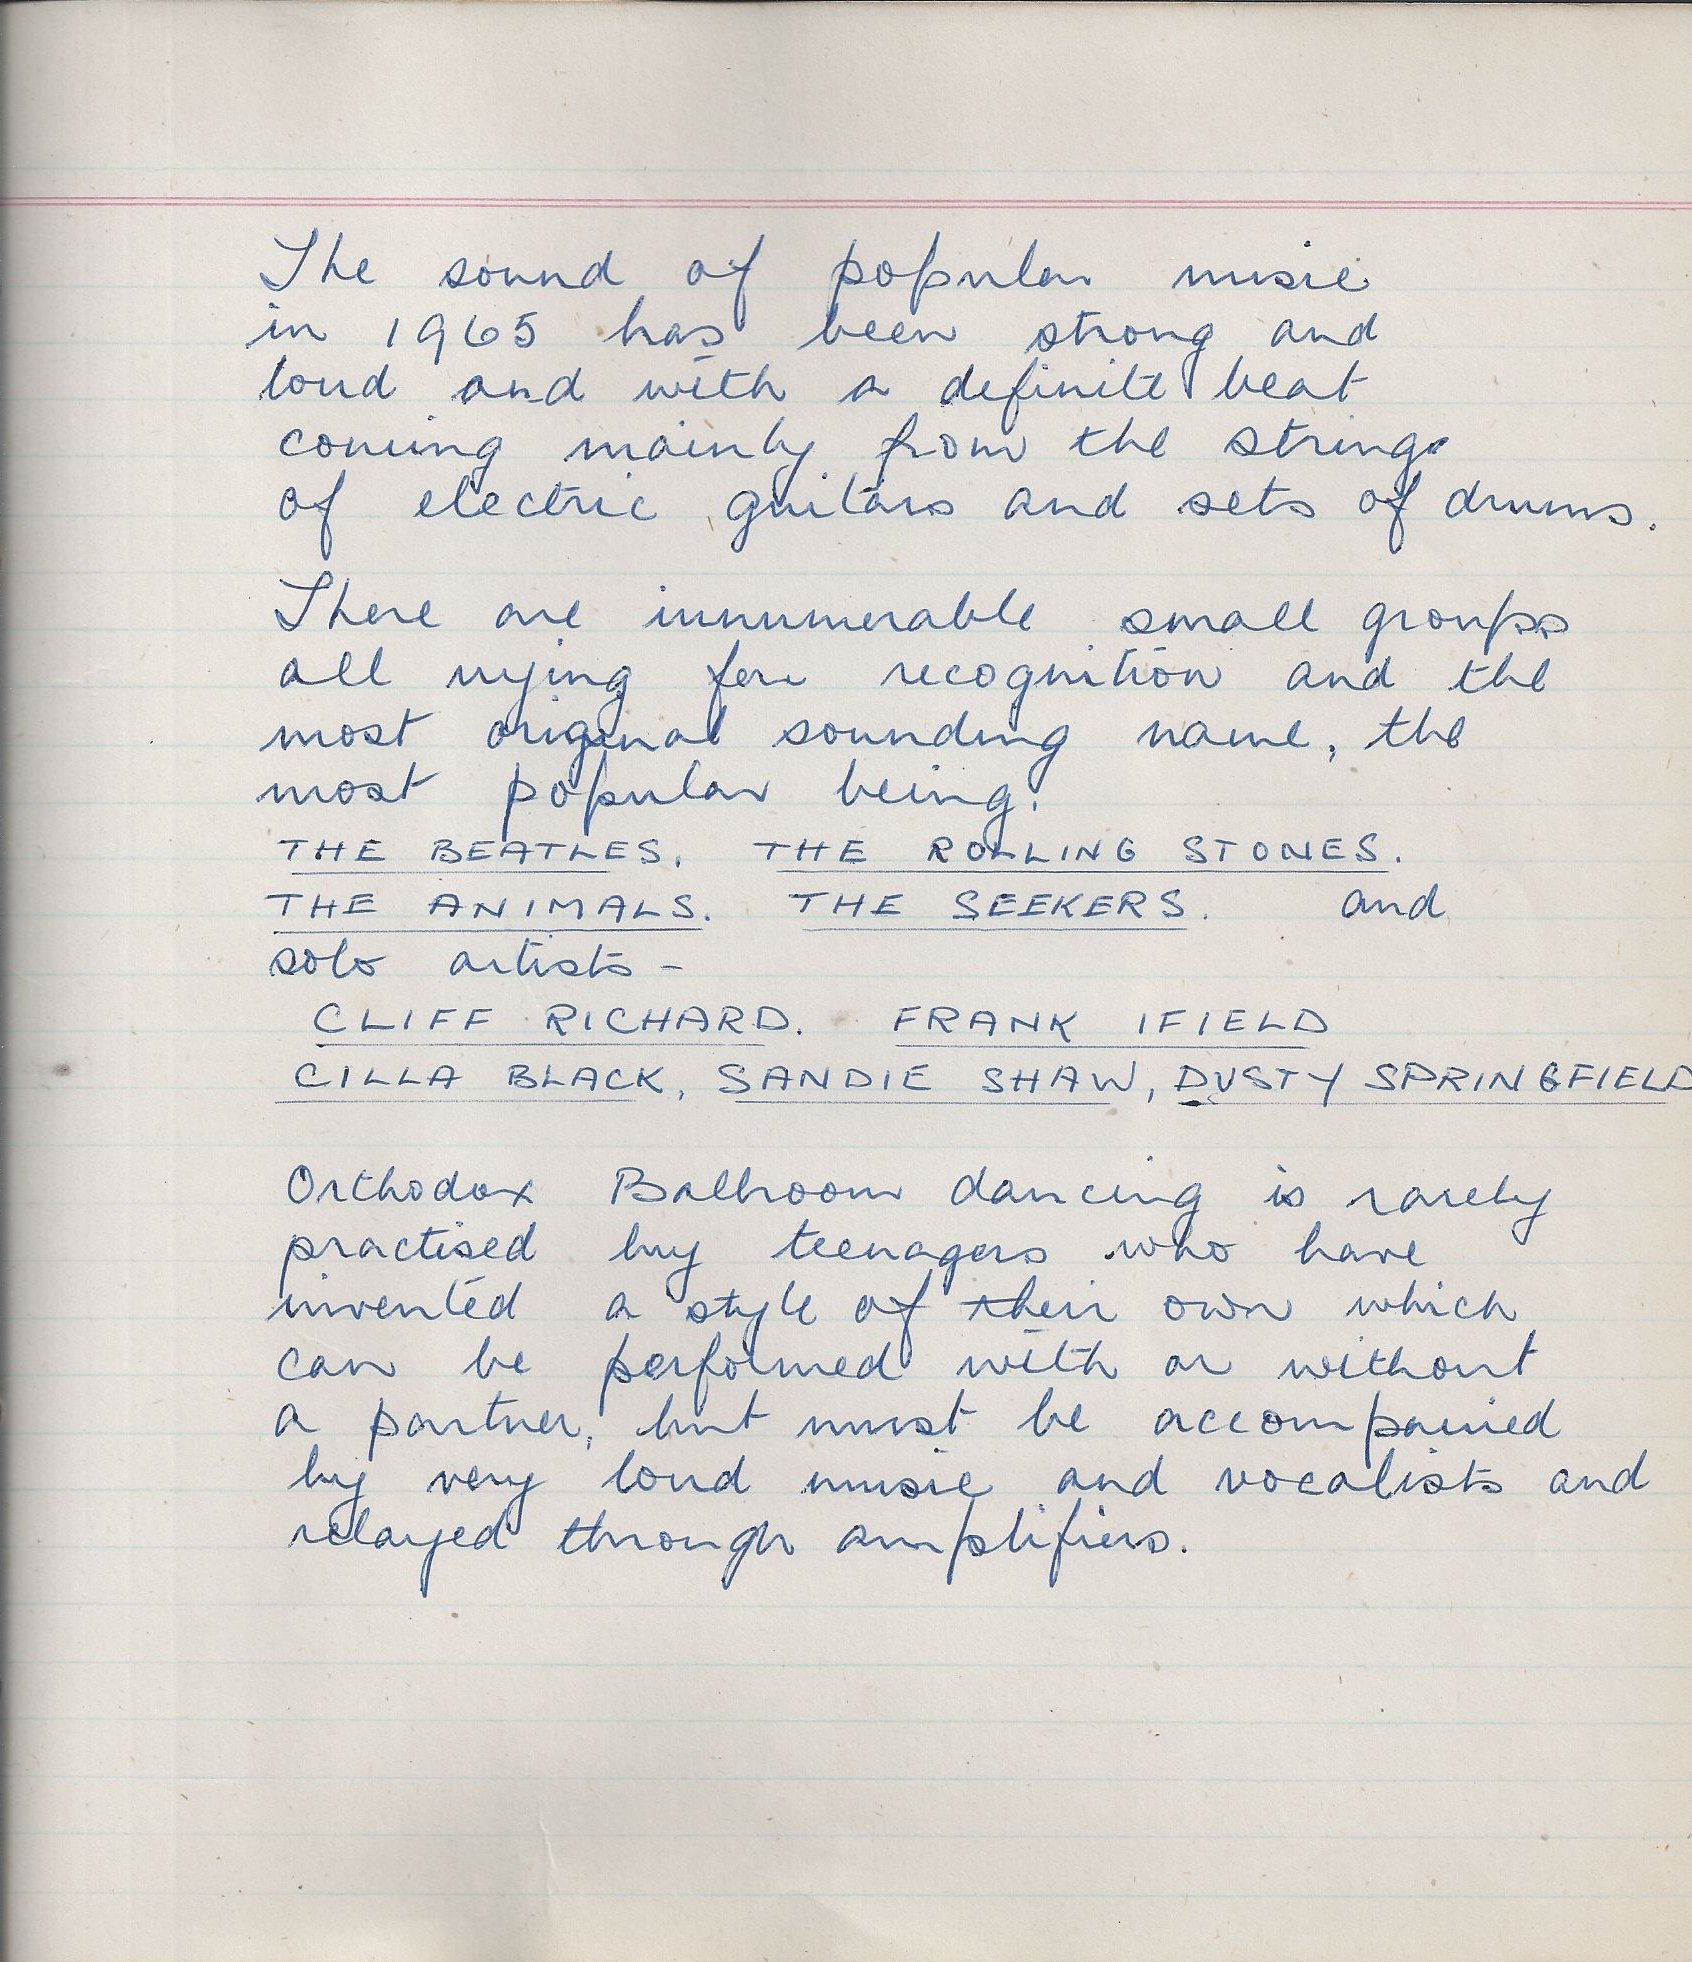 The sound of popular music
in 1965 has been strong and
loud and with a definite beat
coming mainly from the strings
of electric guitars and sets of drums.
There are innumerable small groups
all vying for recognition and the
most original sounding name, the
most popular being.
THE BEATLES. THE ROLLING STONES.
THE ANIMALS. THE SEEKERS. and
solo artists -
CLIFF RICHARD. FRANK IFIELD
CILLA BLACK, SANDIE SHAW, DUSTY SPRINGFIELD
Orthodox Ballroom dancing is rarely
practised by teenagers who have
invented a style of their own which
can be performed with or without
a partner, but must be accompanied
by very loud music and vocalists and
relayed through amplifiers.